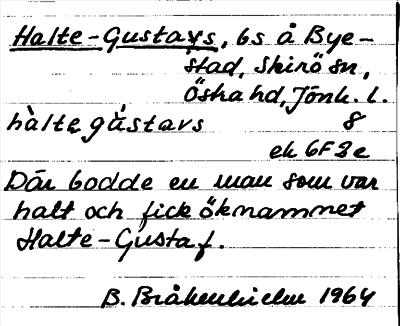 Halte-Gustavs, bs å Bye-
stad, Skirö sn,
Östra hd, Jönk. l.
hàlte gústavs 8
ek 6F3e
Där bodde en man som var
halt och fick öknamnet
Halte-Gustaf.
B. Bråkenhielm 1964